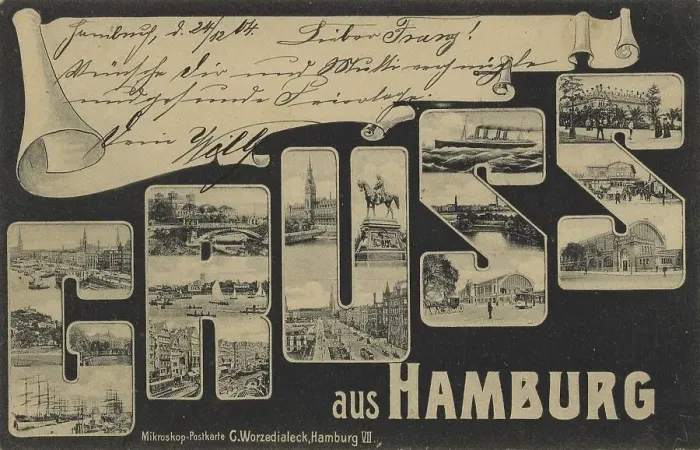 Hamburg, d. 24/12 04. Lieber Franz!
Wünsche Dir und Mutti vergnügte
und gesunde Feiertage.
Dein Willy
GRUSS
aus HAMBURG
Mikroskop-Postkarte G. Worzedialeck, Hamburg VII.